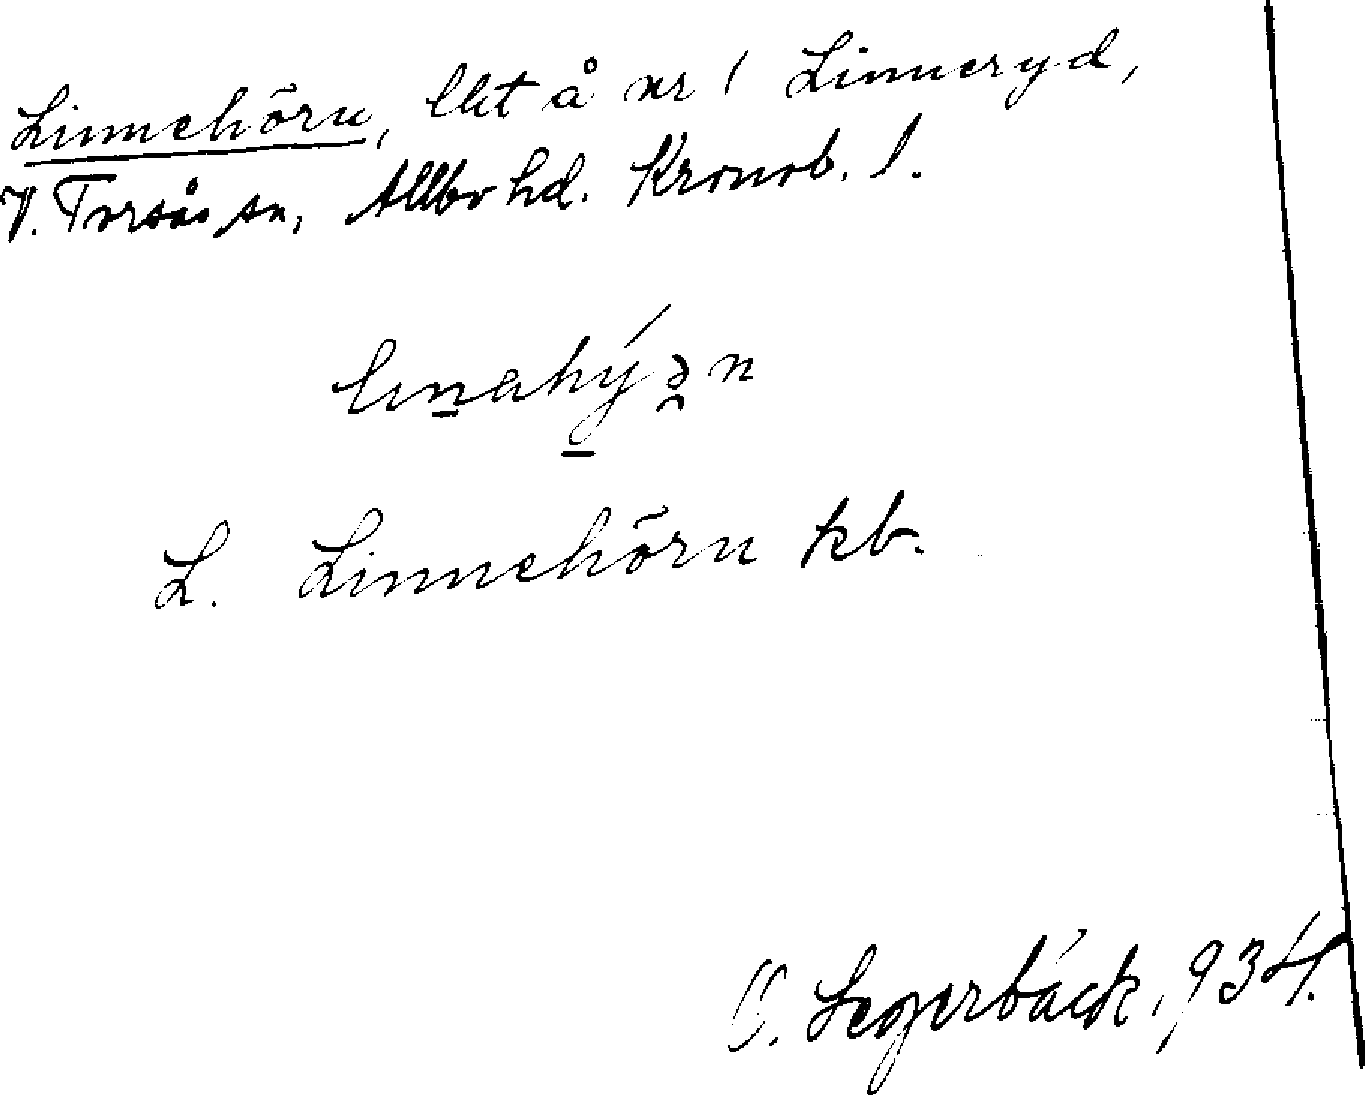 Linnehörn, lht å nr 1 Linneryd,
V. Torsås sn, Allbo hd. Kronob. l.
L. Linnehörn kb.
Segerbäck, 934.